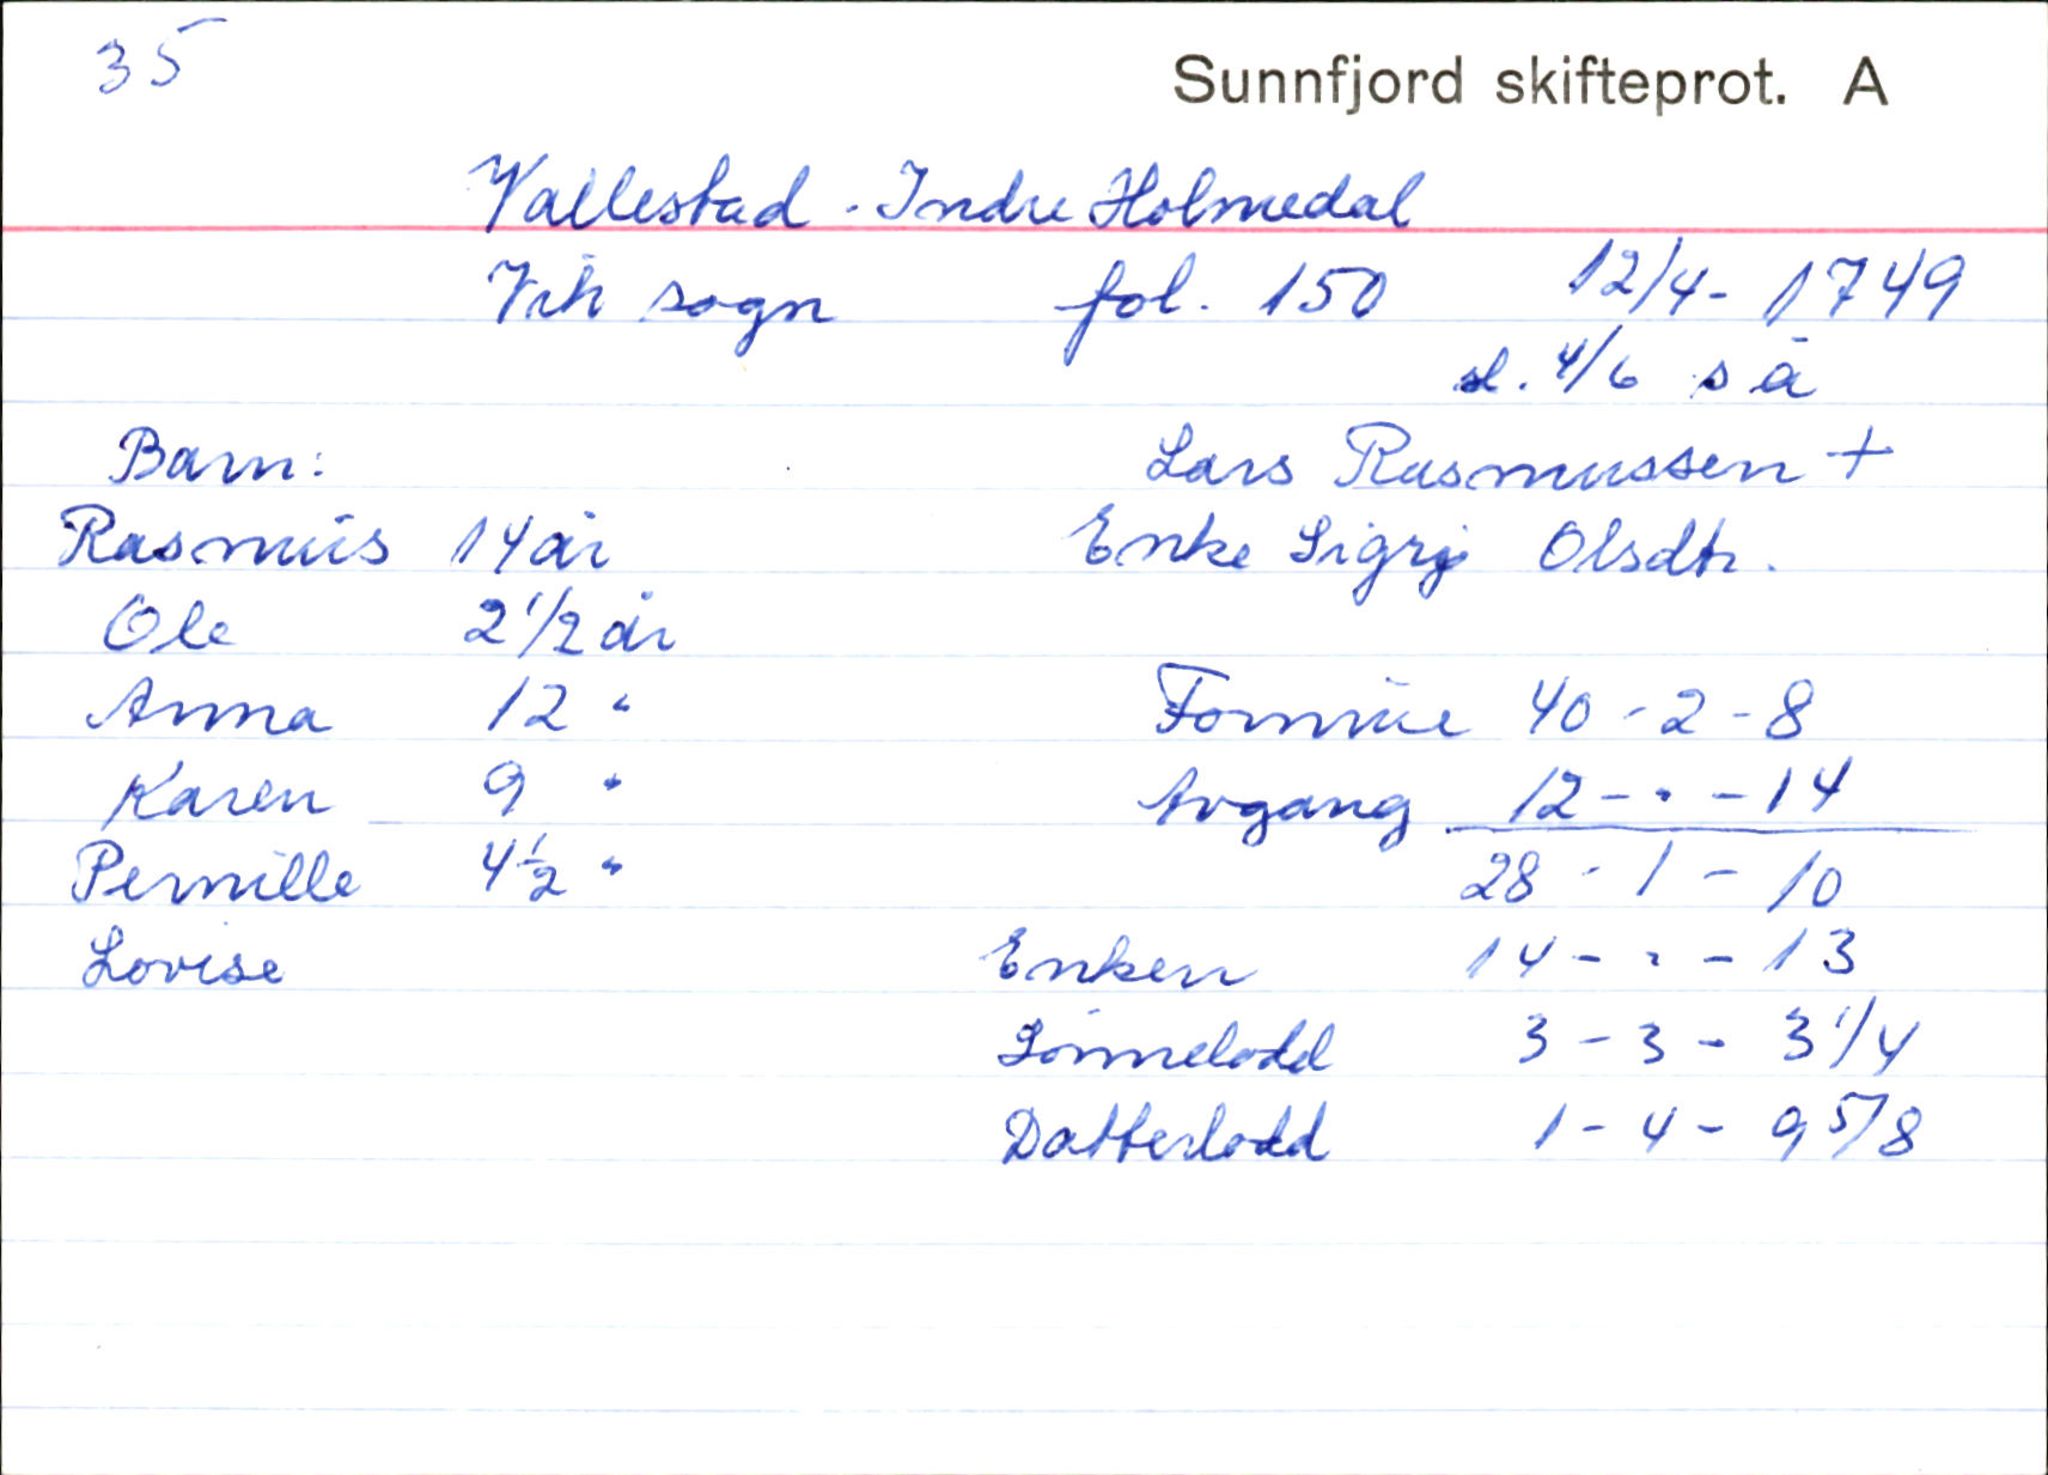 35
Sunnfjord skifteprot. A
Vallestad. Indre Holmedal
Vik sogn fol. 150 12/4- 1749
sl. 4/6 s å
Barn: Lars Rasmussen +
Rasmus 14 år Enke Sigrj Olsdtr.
Ole 2 1/2 år
Anna 12 " Formue 40 - 2 - 8
Karen 9 " Avgang 12 - . - 14
Pernille 4 1/2 " 28 - 1 - 10
Lovise Enken 14 - . - 13
Sønnelodd 3 - 3 - 3 1/4
Datterlodd 1 - 4 - 9 5/8